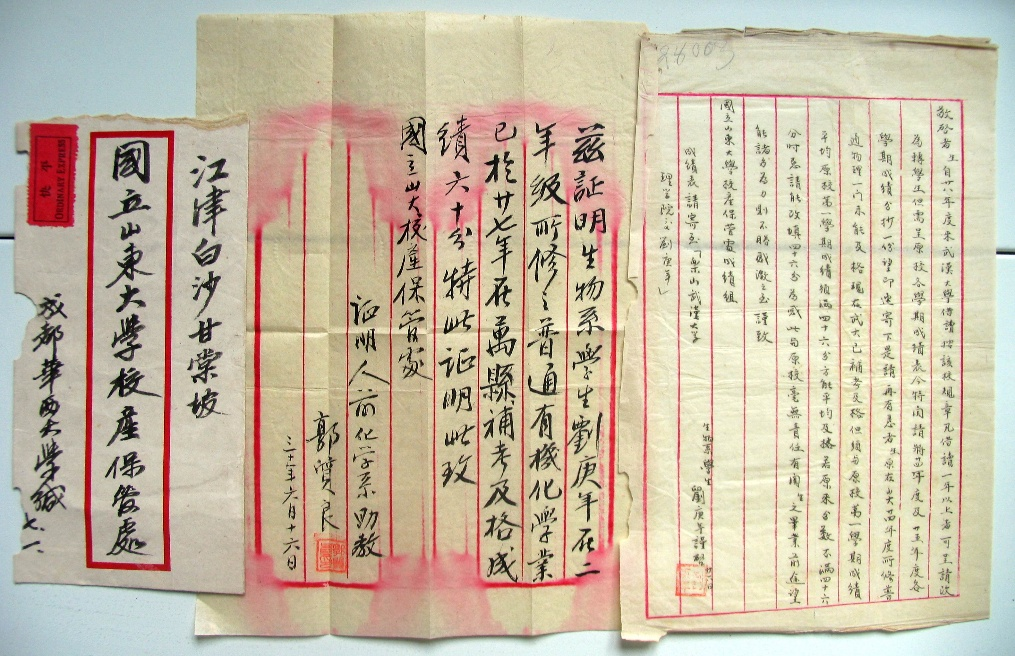 快平
ORDINARY EXPRESS
江津白沙甘棠坡
國立山東大學校產保管處
成都華西大學緘 七.一
茲証明生物系學生劉庚年在二
年級所修之普通有機化學業
已於廿七年在萬縣補考及格成
績六十分特此証明此致
國立山大校產保管處
証明人前化学系助教
郭質良
三十年六月十六日
敬啓者生自廿八年度來武漢大學借讀按該校規章凡借讀一年以上者可呈請改
為轉學生但需呈原校各學期成績表今特函請將廿四年度及廿五年度各
學期成績分抄一份望即速寄下是請再有懇者生原在山大廿四年度所修普
通物理一門未能及格現在武大已補考及格但須與原校第一學期成績
平均原校第一學期成績須滿四十六分方能平均及格若原來分數不滿四十六
分時懇請能改填四十六分為感此與原校毫無責任有關生之畢業前途望
能諸多為力則不勝感激之至 謹致
國立山東大學校產保管處成績組
生物系學生
劉庚年謹啓
成績表請寄至「樂山武漢大學
理学院 劉庚年」